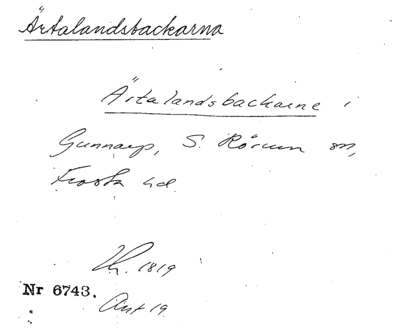 Ärtalandsbackarna
Ärtalandsbackarne i
Gunnarp, S. Rörum sn,
Frosta hd.
1819
Nr 6743.
Ant 19